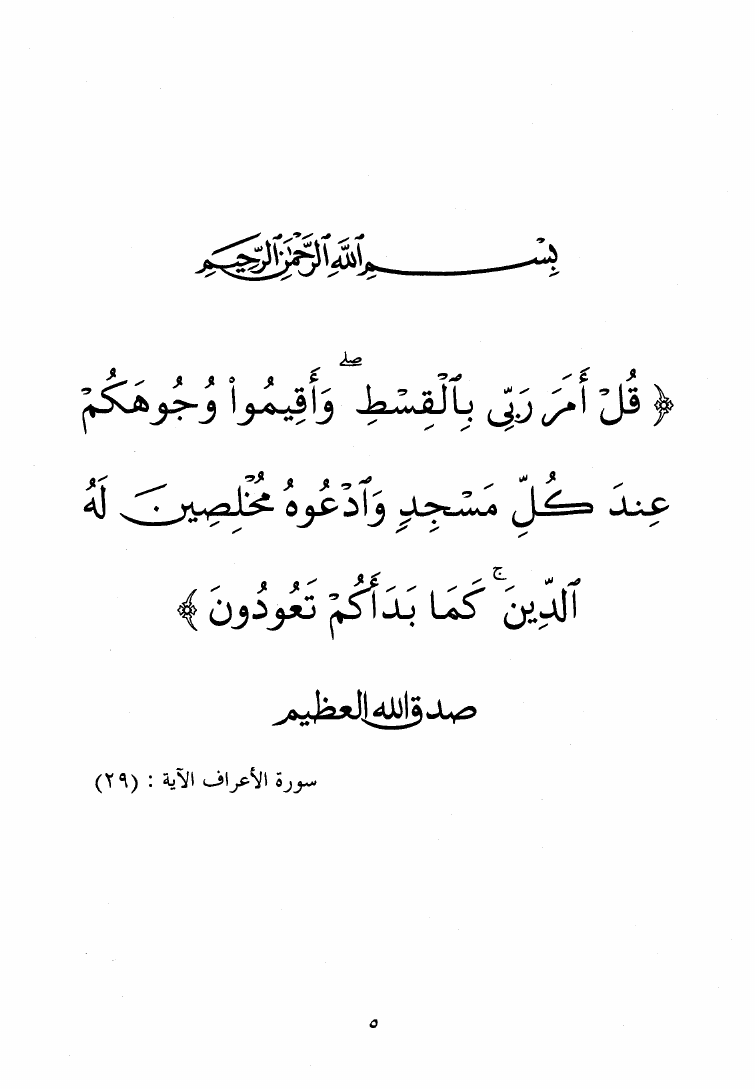 بِسْمِ ٱللَّهِ ٱلرَّحْمَٰنِ ٱلرَّحِيمِ
﴿ قُلْ أَمَرَ رَبِّى بِٱلْقِسْطِ ۖ وَأَقِيمُوا۟ وُجُوهَكُمْ
عِندَ كُلِّ مَسْجِدٍ وَٱدْعُوهُ مُخْلِصِينَ لَهُ
ٱلدِّينَ ۚ كَمَا بَدَأَكُمْ تَعُودُونَ ﴾
صدق الله العظيم
سورة الأعراف الآية : (٢٩)
٥